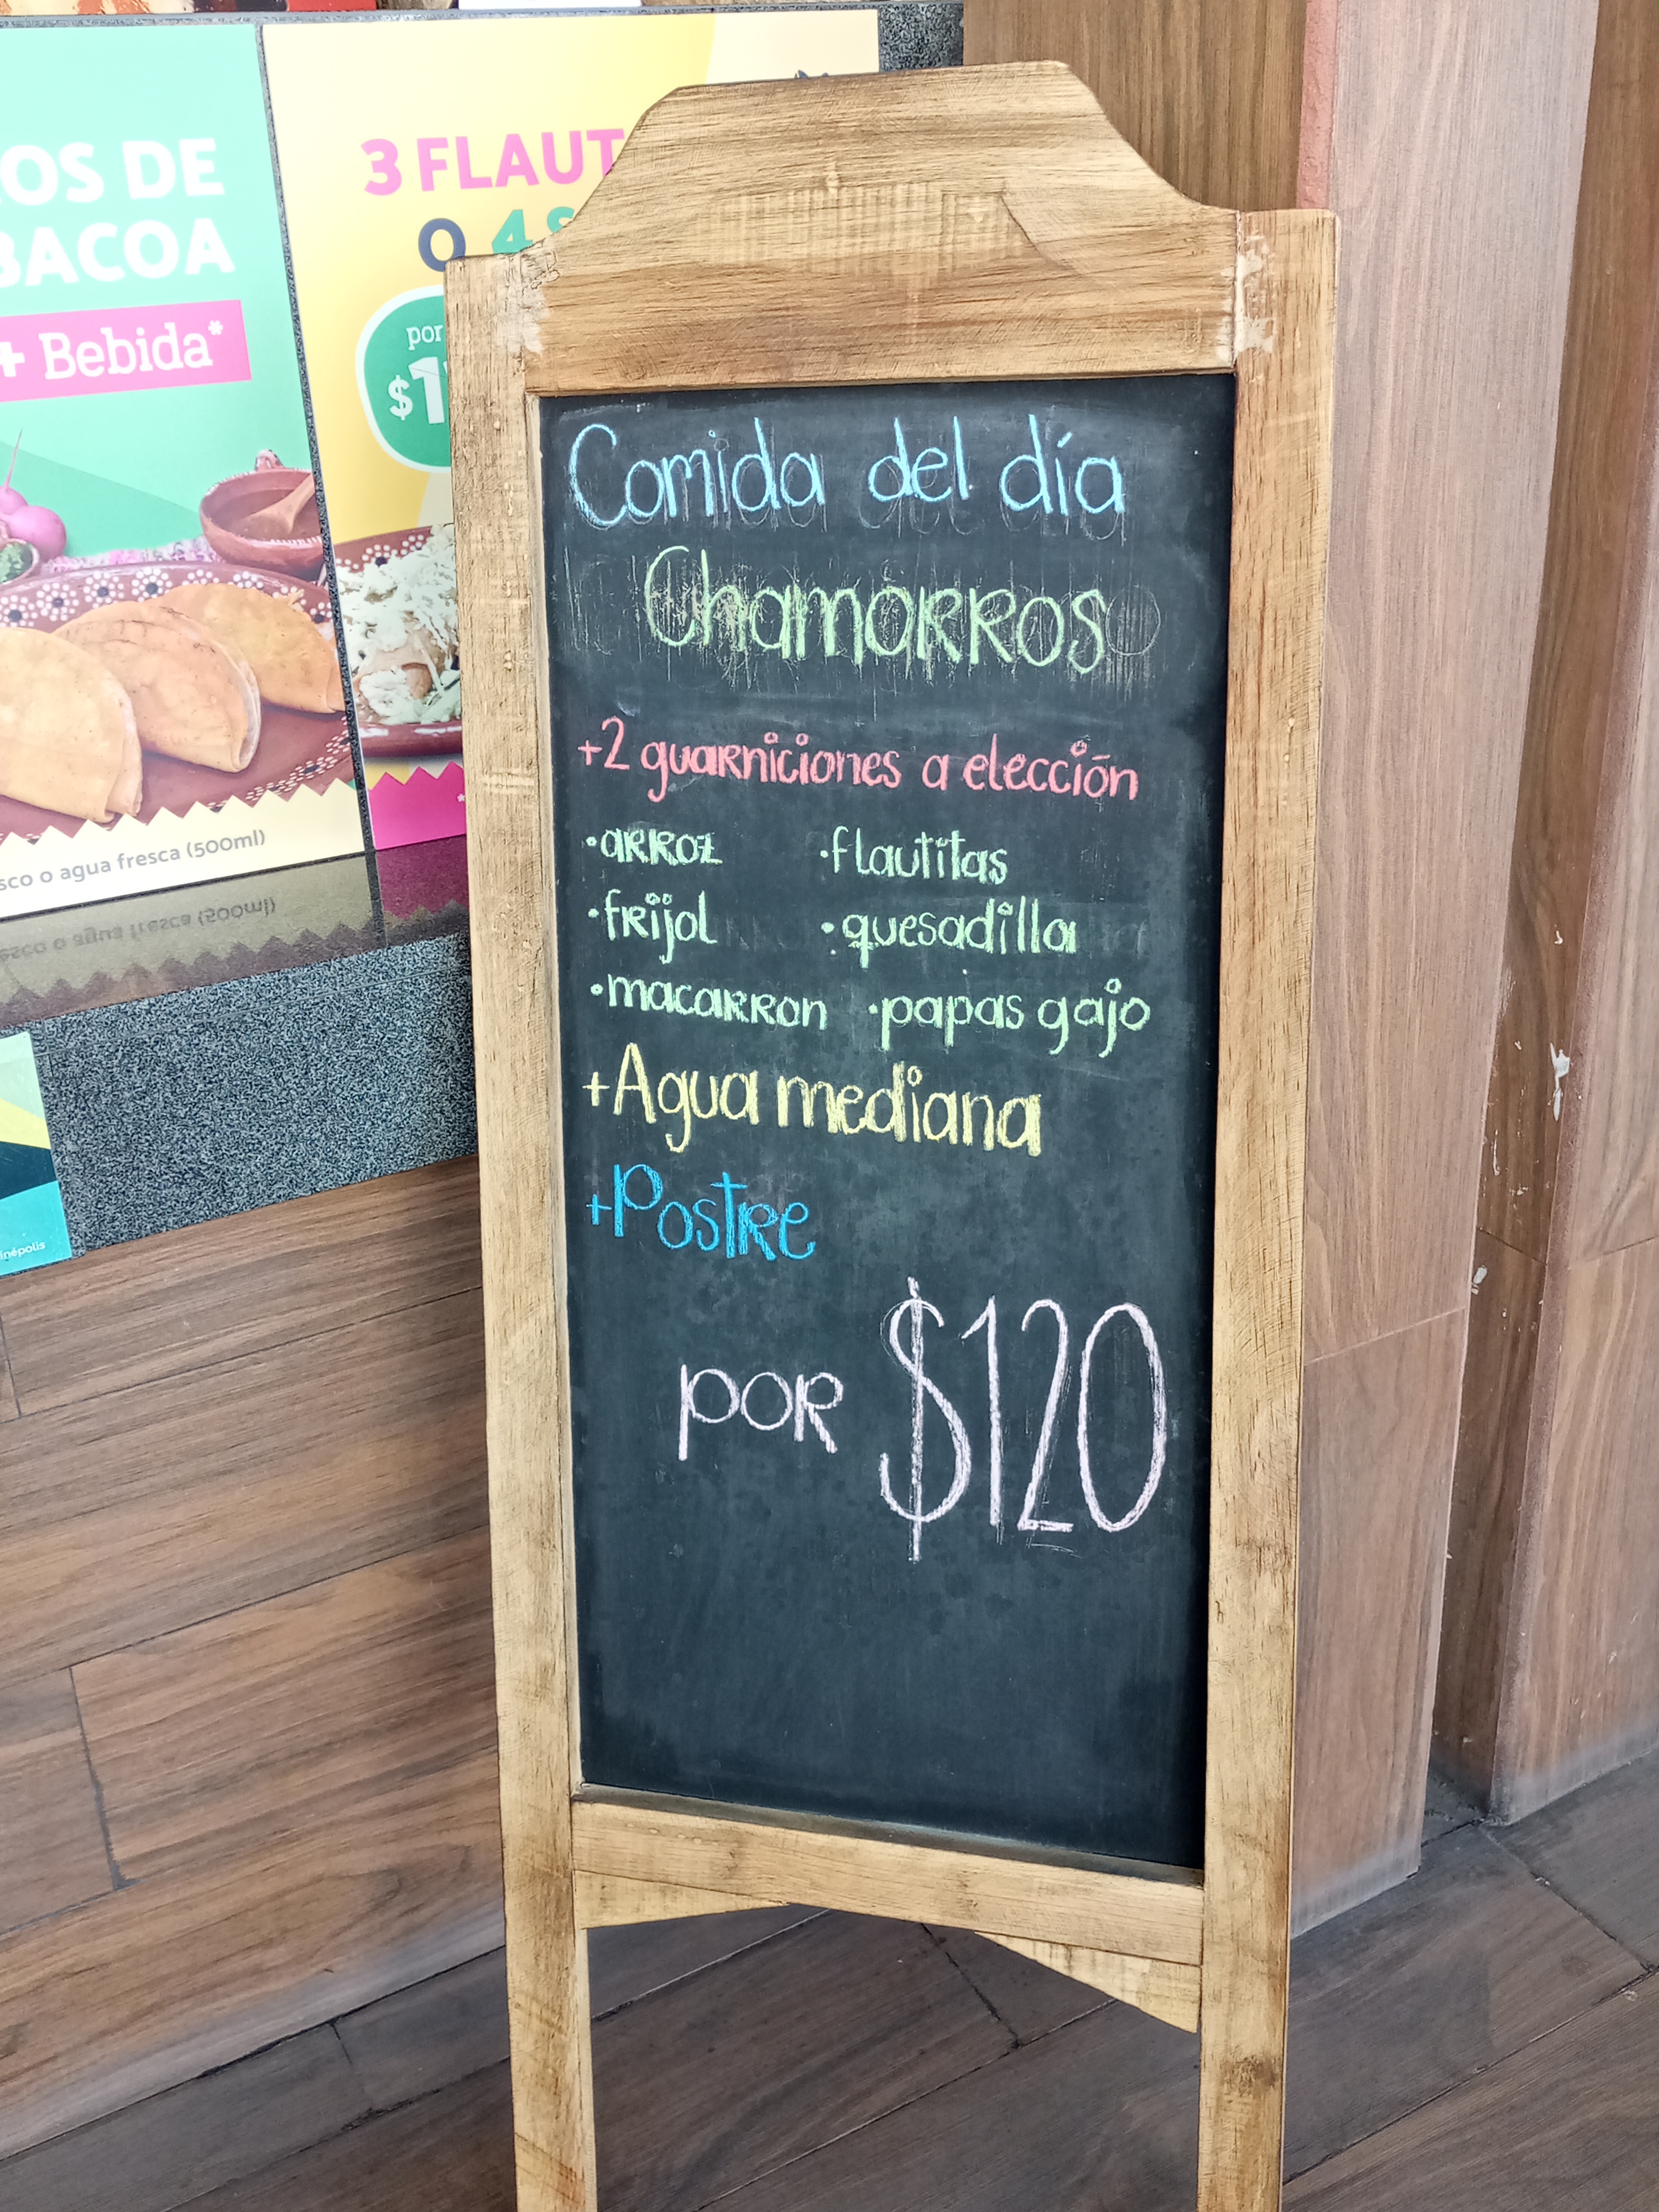 OS DE
BACOA
+ Bebida*
sco o agua fresca (500ml)
3 FLAUT
O 4 S
por
$1
Comida del día
Chamorros
+2 guarniciones a elección
·arroz ·flautitas
·frijol ·quesadilla
·macarron ·papas gajo
+Agua mediana
+Postre
por $120
inépolis